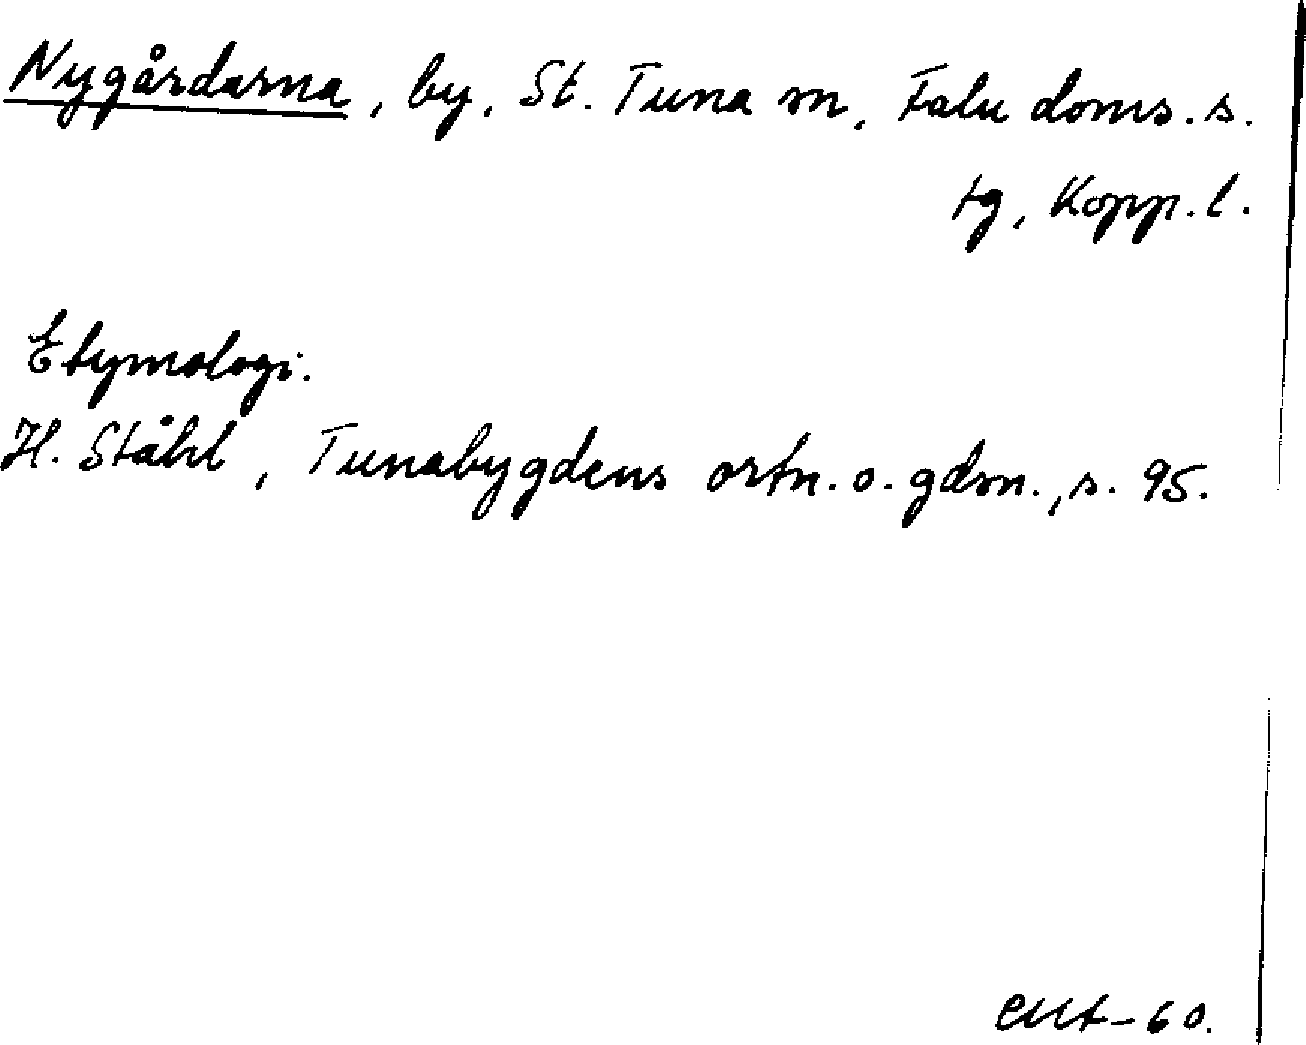 Nygårdarna, by, St. Tuna sn, Falu doms.s.
tg, Kopp.l.
Etymologi.
H. Ståhl, Tunabygdens ortn. o. gdsn., s. 95.
60.